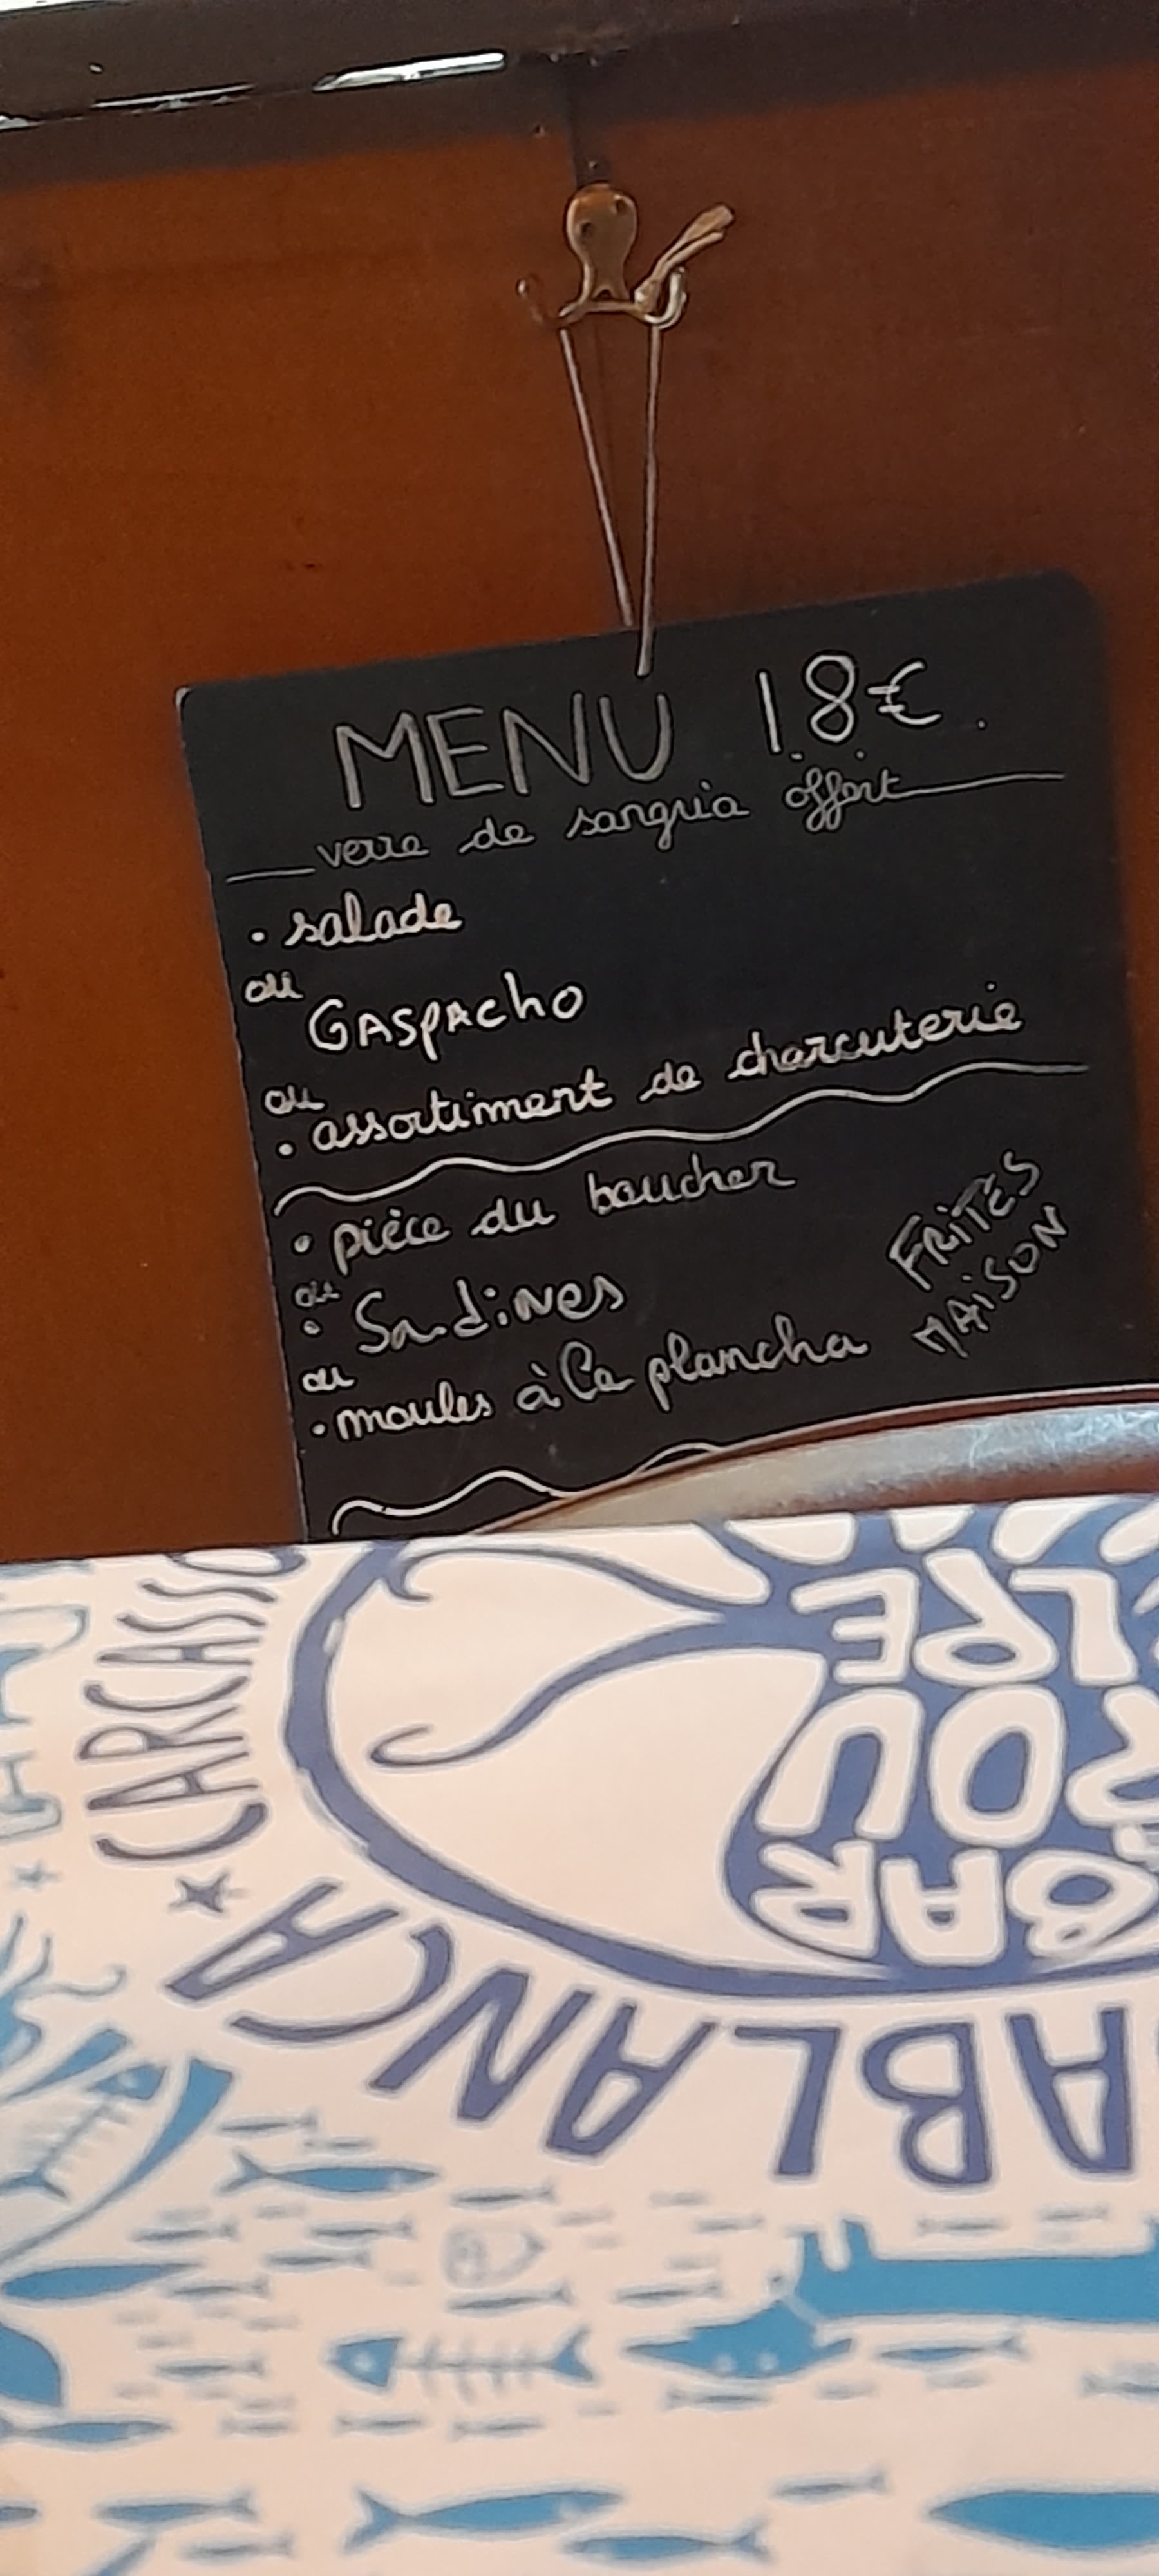 MENU 18€.
verre de sangria offert
• salade
ou
GASPACHO
ou
• assortiment de charcuterie
• pièce du boucher
ou
• Sardines
ou
• moules à la plancha
FRITES
MAISON
CARCASSO
BAR
OU
ABLANCA